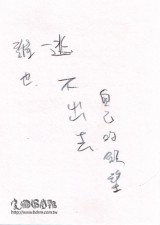 誰也
逃不出去
自己的欲望